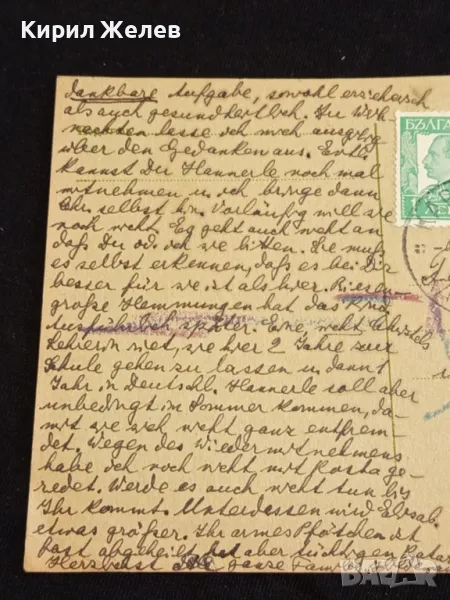 Кирил Желев
dankbare Aufgabe, sowohl erzieherisch
als auch gesundheitlich. Zu Weih
nachten lasse ich mich ausgiebig
über den Gedanken aus. Evtl.
kannst Du Hannerle noch mal
mitnehmen u. ich bringe dann
Ihr selbst hin. Vorläufig will sie
noch nicht. Es geht auch nicht an
daß Du od. ich sie bitten. Sie muß
es selbst erkennen, daß es bei Dir
besser für sie ist als hier. Riesen-
große Hemmungen hat das Kind
Ausführlich später. Eine
Lehrerin riet, sie hier 2 Jahre zur
Schule gehen zu lassen u. dann 1
Jahr in Deutschl. Hannerle soll aber
unbedingt im Sommer kommen, da-
mit sie sich nicht ganz entfrem
det. Wegen des Wiedermitnehmens
habe ich noch nicht mit Rosta ge-
redet. Werde es auch nicht tun bis
Ihr kommt. Unterdessen wird Elisab.
etwas größer. Ihr armes Pfötchen ist
fast abgeheilt, hat aber tüchtigen Katar
Herzlichst die ganze
БЪЛГА
bazar